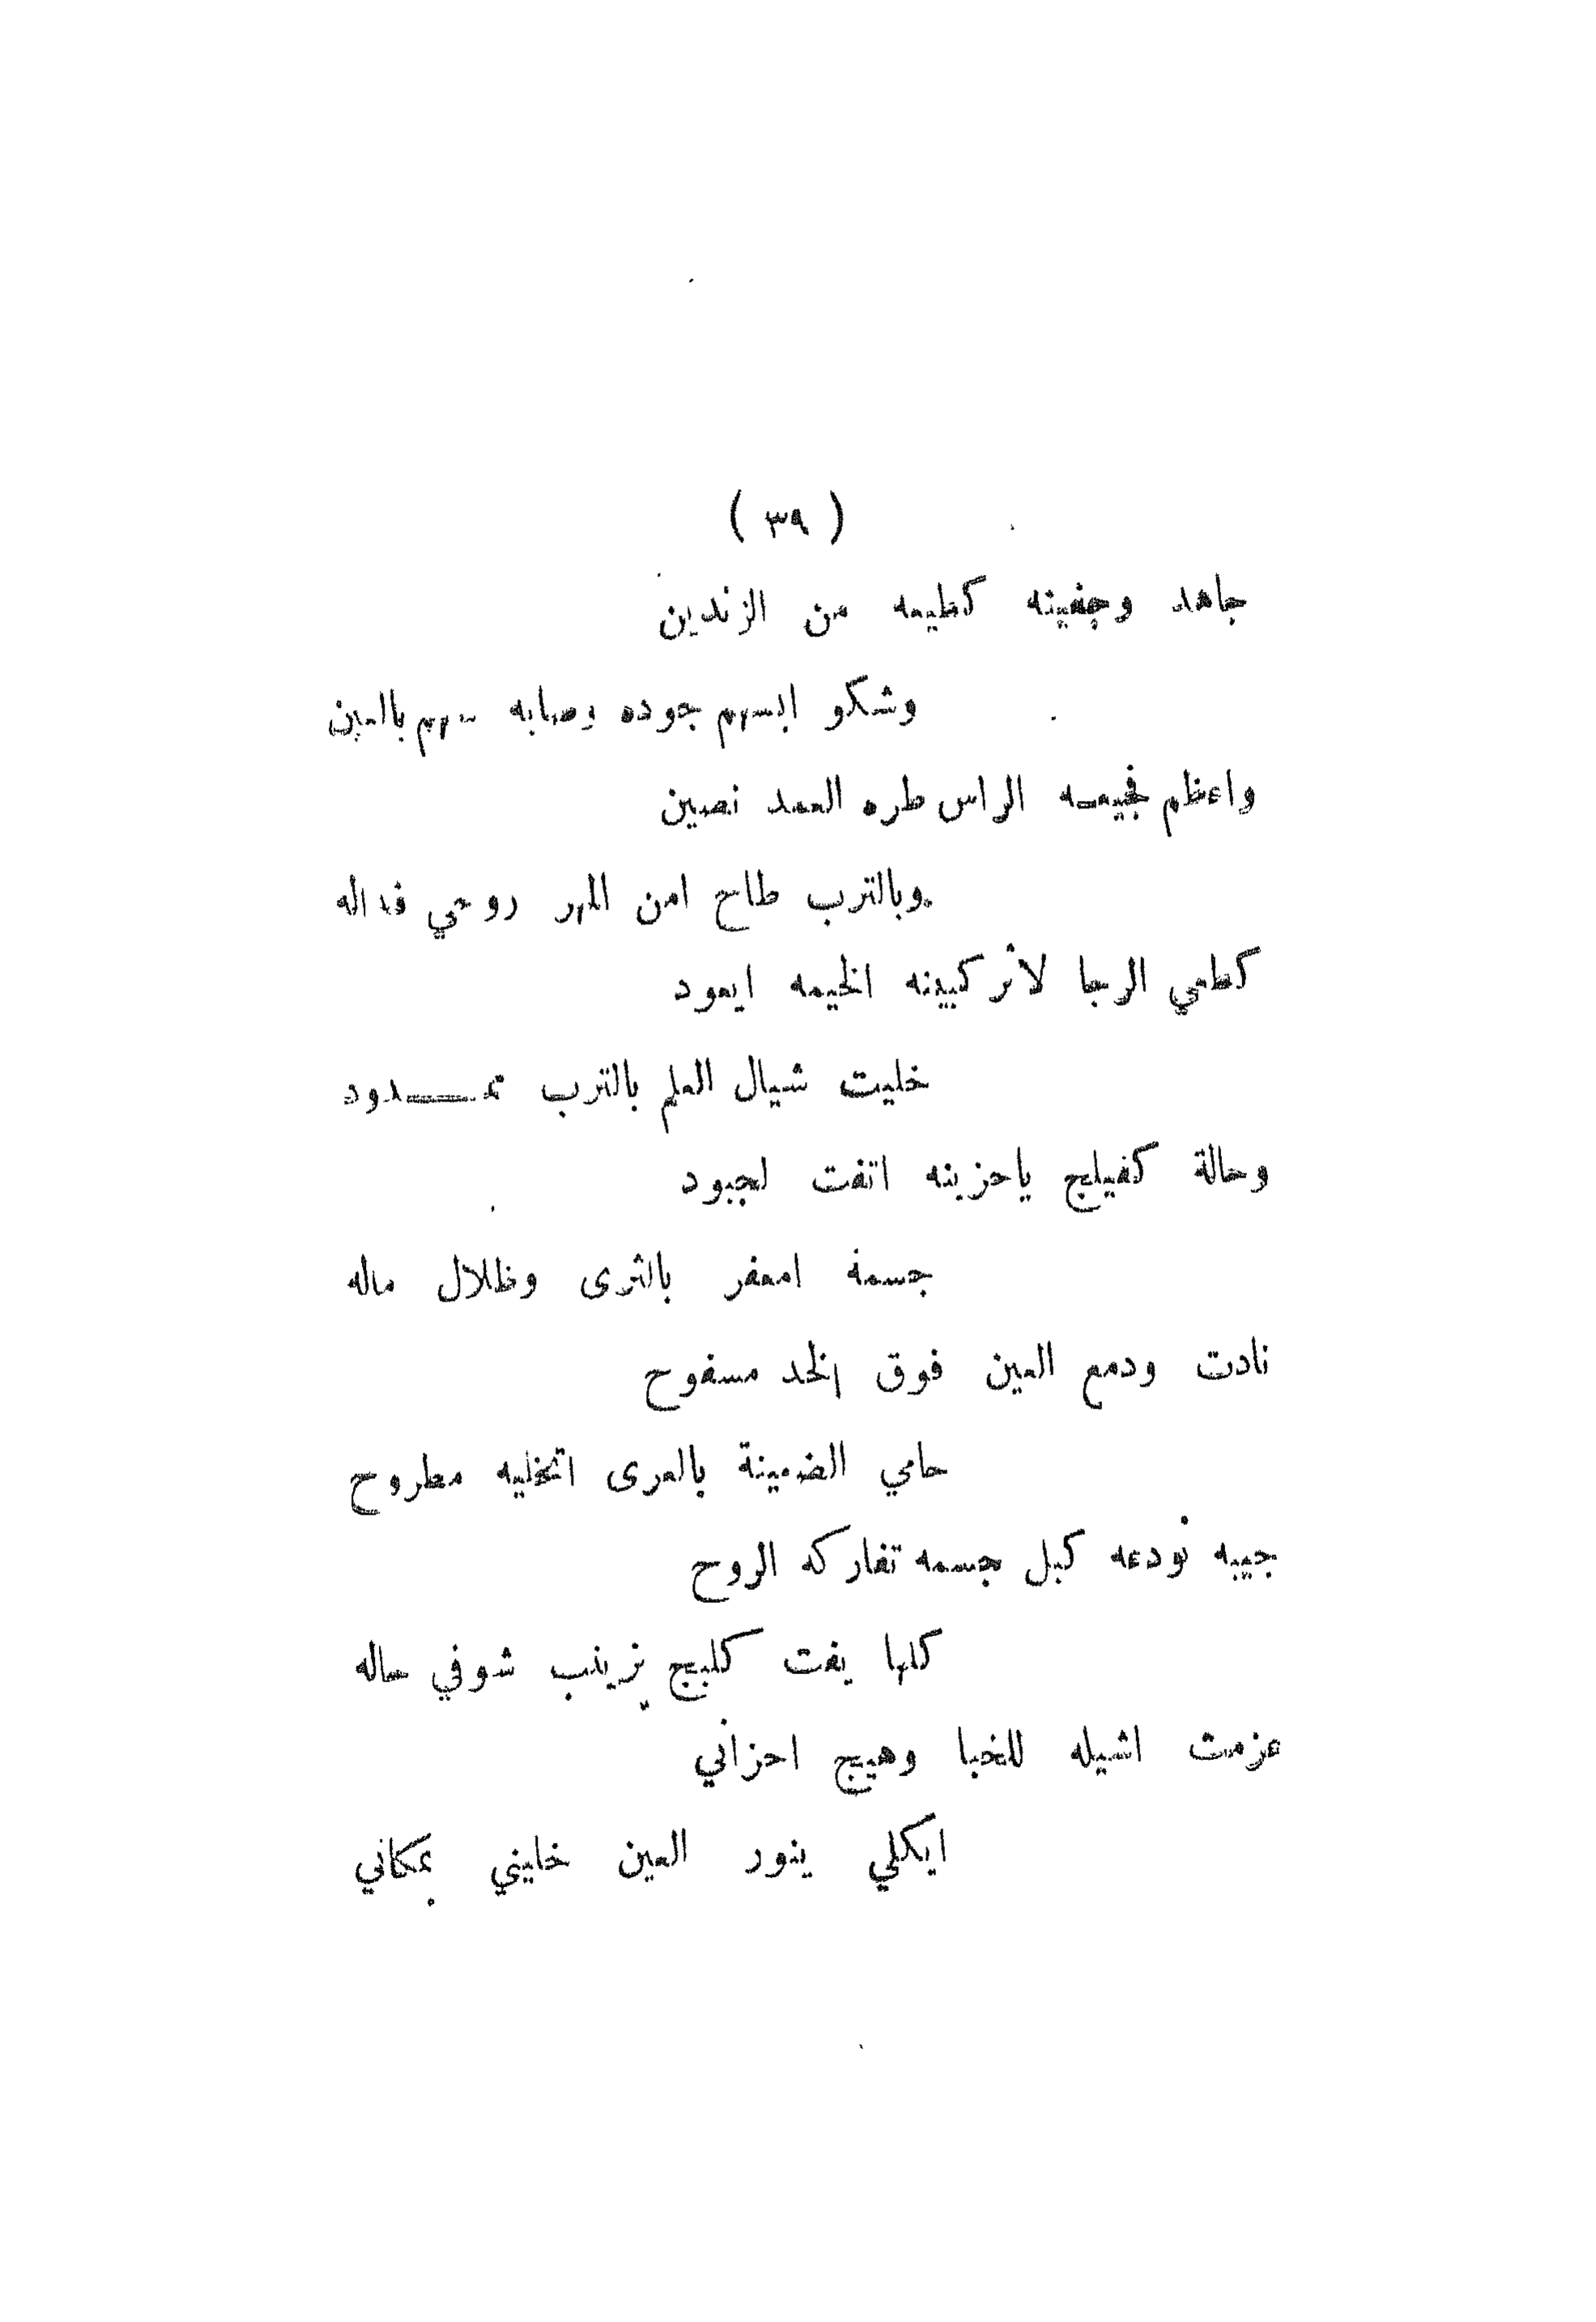 ( ٣٩ )
جاهد وچفينه كطيعه من الزندين
وشكو ابسهم جوده وصابه سهم بالعين
واعظم فجيعه الراس طره العمد نصين
وبالترب طاح امن المهر روحي فداله
كطعي الرجا لاتركبينه الخيمه ايعود
خليت شيال العلم بالترب ممدود
وحالة كفيلج ياحزينه اتفت لچبود
جسمه امعفر بالثرى وظلال ماله
نادت ودمع العين فوق الخد مسفوح
حامي الضمينة بالعرى اتخليه مطروح
جيبه نودعه كبل جسمه تفاركه الروح
كلها يفت كلبج يزينب شوفي حاله
عزمت اشيله للخبا وهيج احزاني
ايكلي ينور العين خليني بمكاني